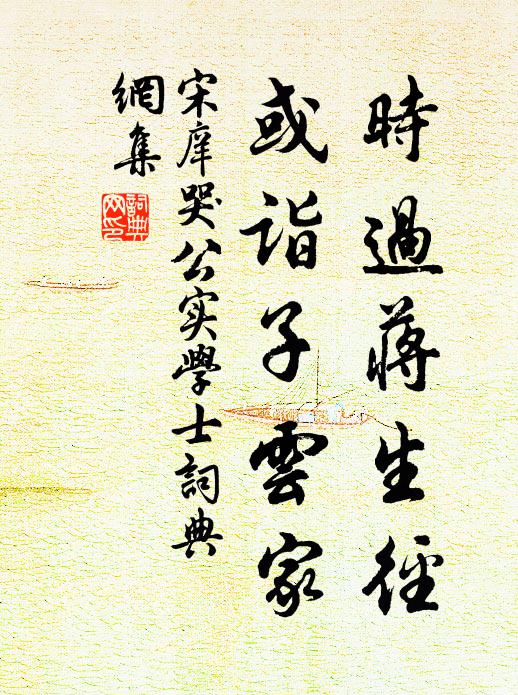 時過蔣生徑
或詣子雲家
宋庠哭公实學士詞典
網集
詞典
网印